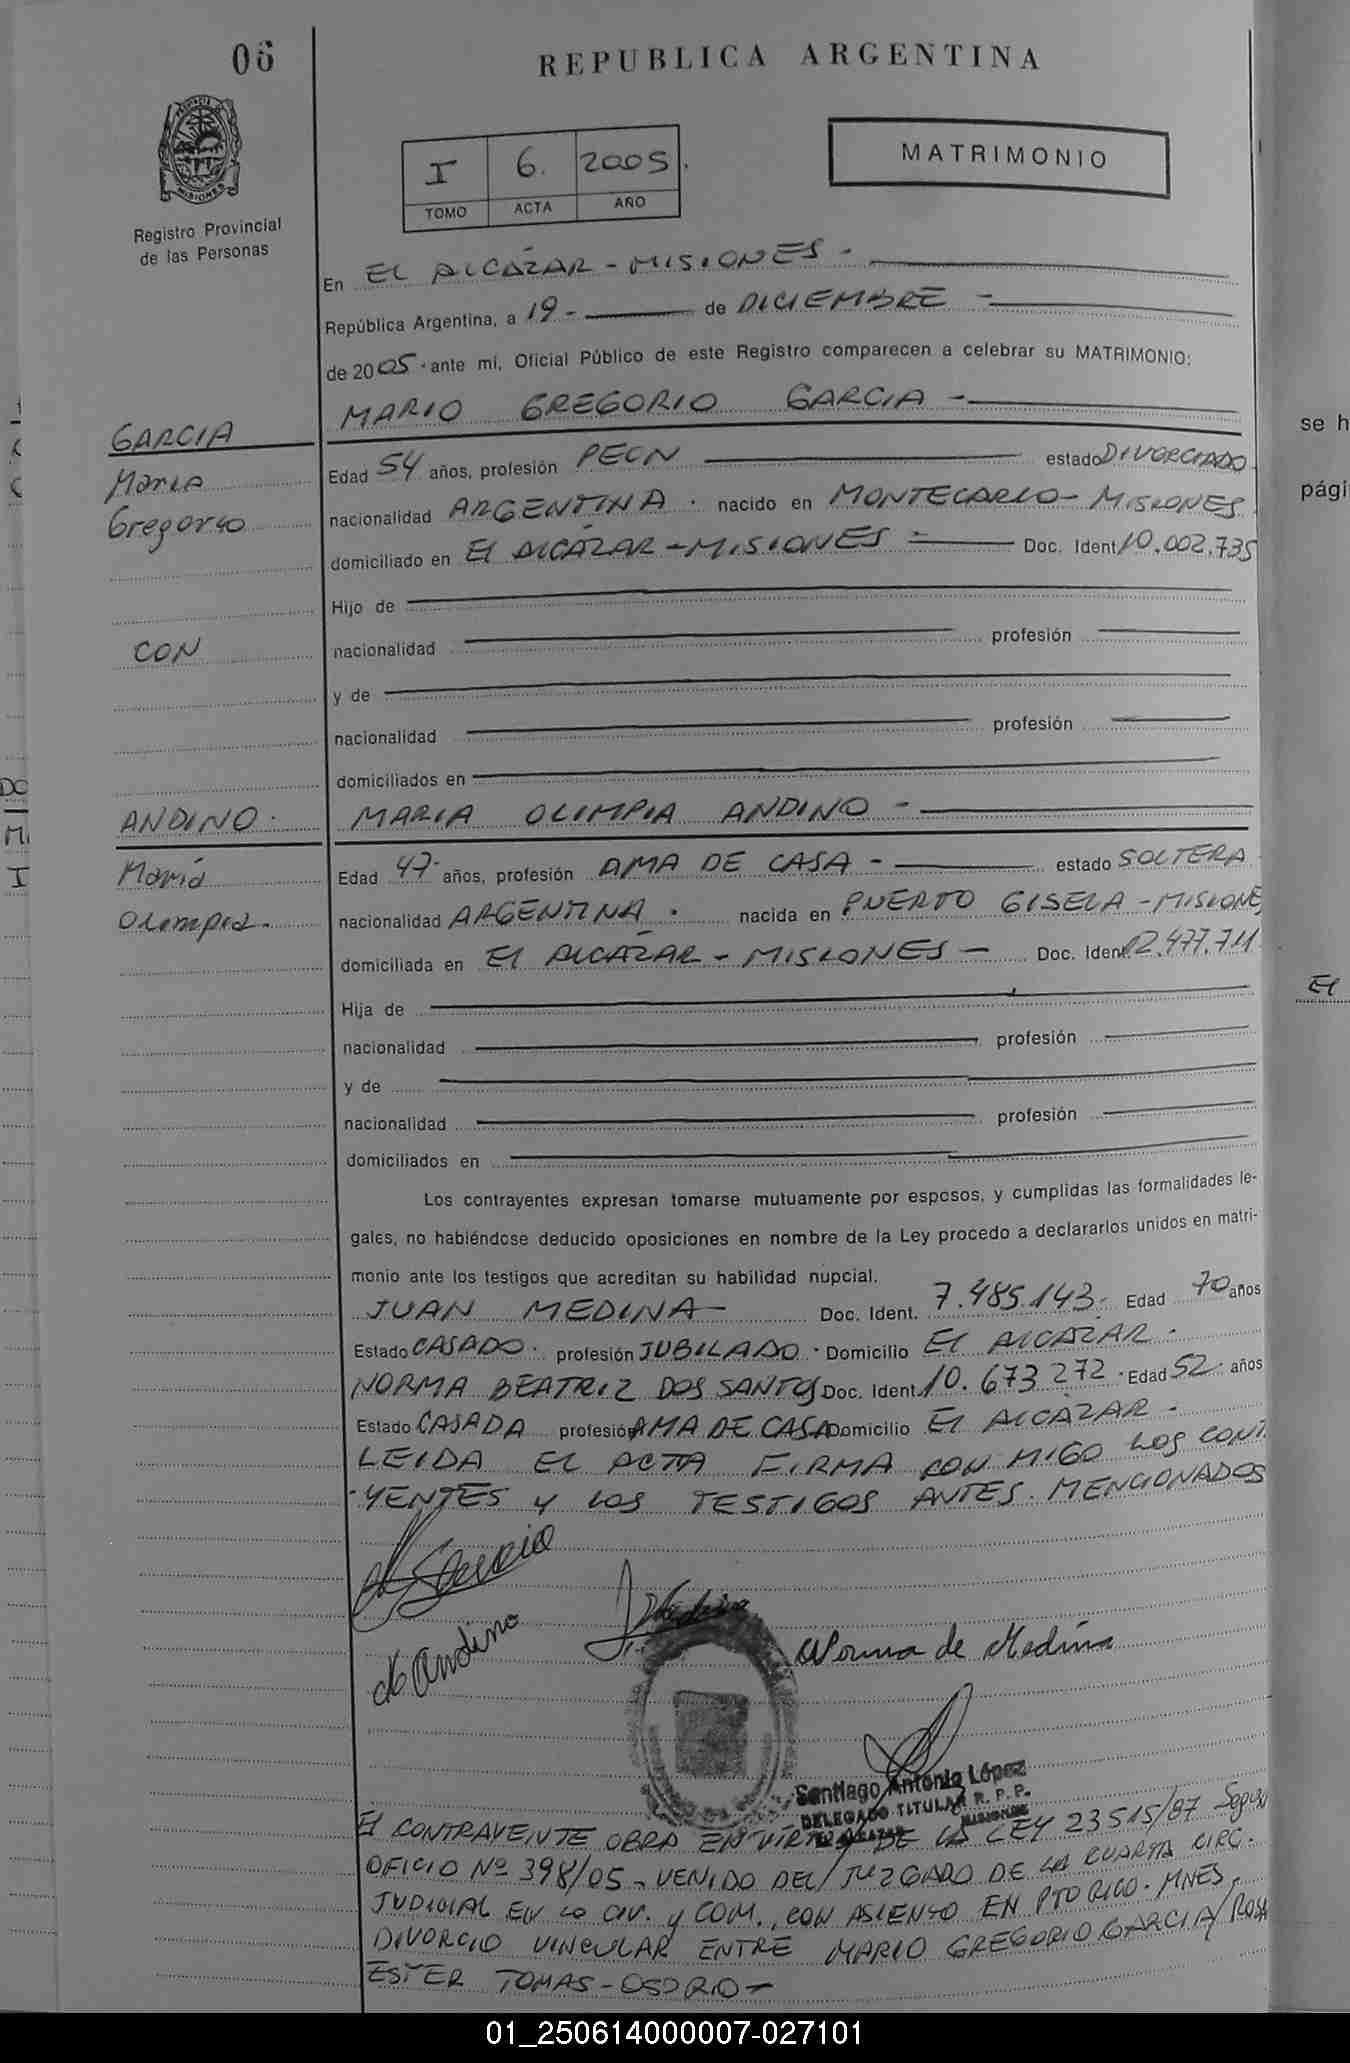 06
REPUBLICA ARGENTINA
MISIONES
Registro Provincial
de las Personas
I 6. 2005.
TOMO ACTA AÑO
MATRIMONIO
En EL ALCÁZAR - MISIONES -
República Argentina, a 19 - de DICIEMBRE -
de 2005 · ante mí, Oficial Público de este Registro comparecen a celebrar su MATRIMONIO:
MARIO GREGORIO GARCIA -
GARCIA
Mario
Gregorio
Edad 54 años, profesión PEON estado DIVORCIADO
nacionalidad ARGENTINA · nacido en MONTECARLO - MISIONES
domiciliado en El ALCÁZAR - MISIONES - Doc. Ident. 10.002.735
Hijo de
CON
nacionalidad profesión
y de
nacionalidad profesión
domiciliados en
ANDINO · MARIA OLIMPIA ANDINO -
María
Olimpia.
Edad 47 años, profesión AMA DE CASA - estado SOLTERA
nacionalidad ARGENTINA · nacida en PUERTO GISELA - MISIONES
domiciliada en El ALCÁZAR - MISIONES - Doc. Ident. 12.477.711
Hija de
nacionalidad profesión
y de
nacionalidad profesión
domiciliados en
Los contrayentes expresan tomarse mutuamente por esposos, y cumplidas las formalidades le-
gales, no habiéndose deducido oposiciones en nombre de la Ley procedo a declararlos unidos en matri-
monio ante los testigos que acreditan su habilidad nupcial.
JUAN MEDINA - Doc. Ident. 7.485.143 - Edad 70 años
Estado CASADO · profesión JUBILADO · Domicilio El ALCÁZAR -
NORMA BEATRIZ DOS SANTOS Doc. Ident. 10.673272 · Edad 52 años
Estado CASADA profesión AMA DE CASA Domicilio El ALCÁZAR -
LEIDA EL ACTA FIRMA CON MIGO LOS CONT
YENTES y LOS TESTIGOS ANTES MENCIONADOS
M Garcia
M Andino
J. Medina
Norma de Medina
Santiago Antonio López
DELEGADO TITULAR R. P. P.
EL ALCAZAR MISIONES
El CONTRAYENTE OBRA EN VIRTUD DE LA LEY 23515/87 Segun
OFICIO Nº 398/05 - VENIDO DEL JUZGADO DE LA CUARTA CIRC.
JUDICIAL EN LO CIV. y COM., CON ASIENTO EN PTO RICO - MNES.
DIVORCIO VINCULAR ENTRE MARIO GREGORIO GARCIA / ROSA
ESTER TOMAS - OSORIO -
se h
pági
El
01_250614000007-027101